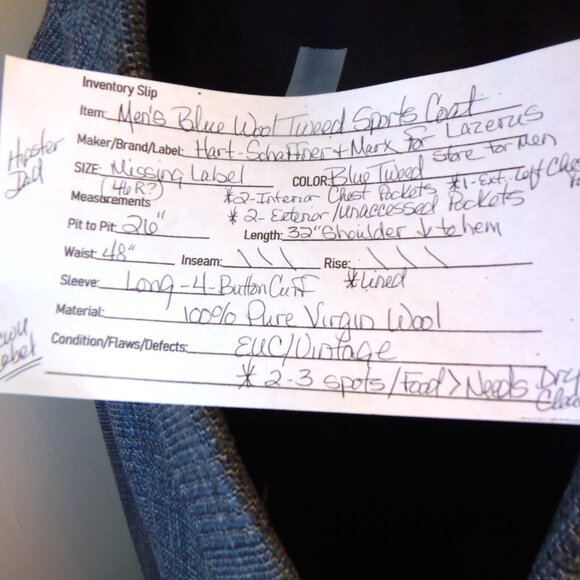 Inventory Slip
Item: Men's Blue Wool Tweed Sports Coat
Maker/Brand/Label: Hart-Schaffner + Marx for Lazerus
Store for Men
Hipster
Dad
SIZE: Missing Label COLOR: Blue Tweed
(46R?)
*2-Interior Chest Pockets *1-Ext. Left Ches
Measurements * 2-Exterior/unaccessed Pockets
Pit to Pit: 26" Length: 32" Shoulder ↓ to hem
Waist: 48" Inseam: \ \ \ Rise: \ \ \
Sleeve: Long-4-Button Cuff *Lined
Material: 100% Pure Virgin Wool
Condition/Flaws/Defects: EUC/Vintage
* 2-3 spots/Food > Needs Dry